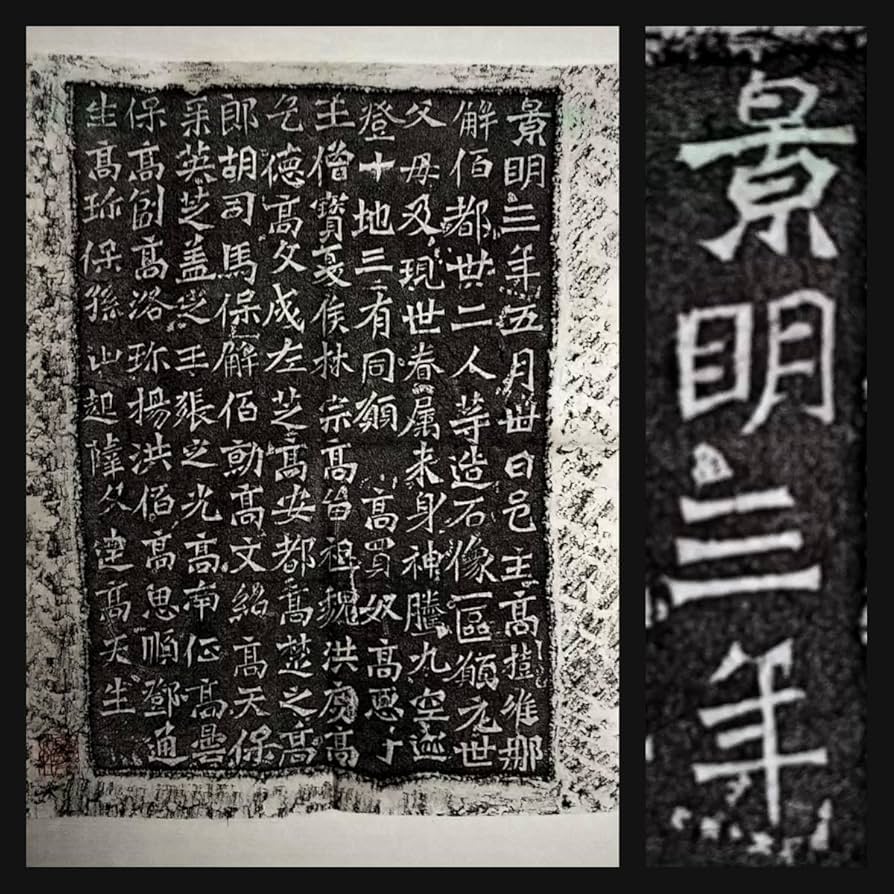 景明三年五月卅日邑主高樹維那
解佰都卅二人等造石像一區願元世
父母及現世眷属来身神騰九空迹
登十地三有同願高買奴高惡子
王僧寶夏侯林宗高留祖魏洪度高
乞德高文成左芝高安都高楚之高
郎胡司馬保解佰勍高文紹高天保
采英芝盖定王張之光高南征高曇
保高高洛珎楊洪佰高思順鄧通
生高珎保孫山起薛文達高天生
景明三年